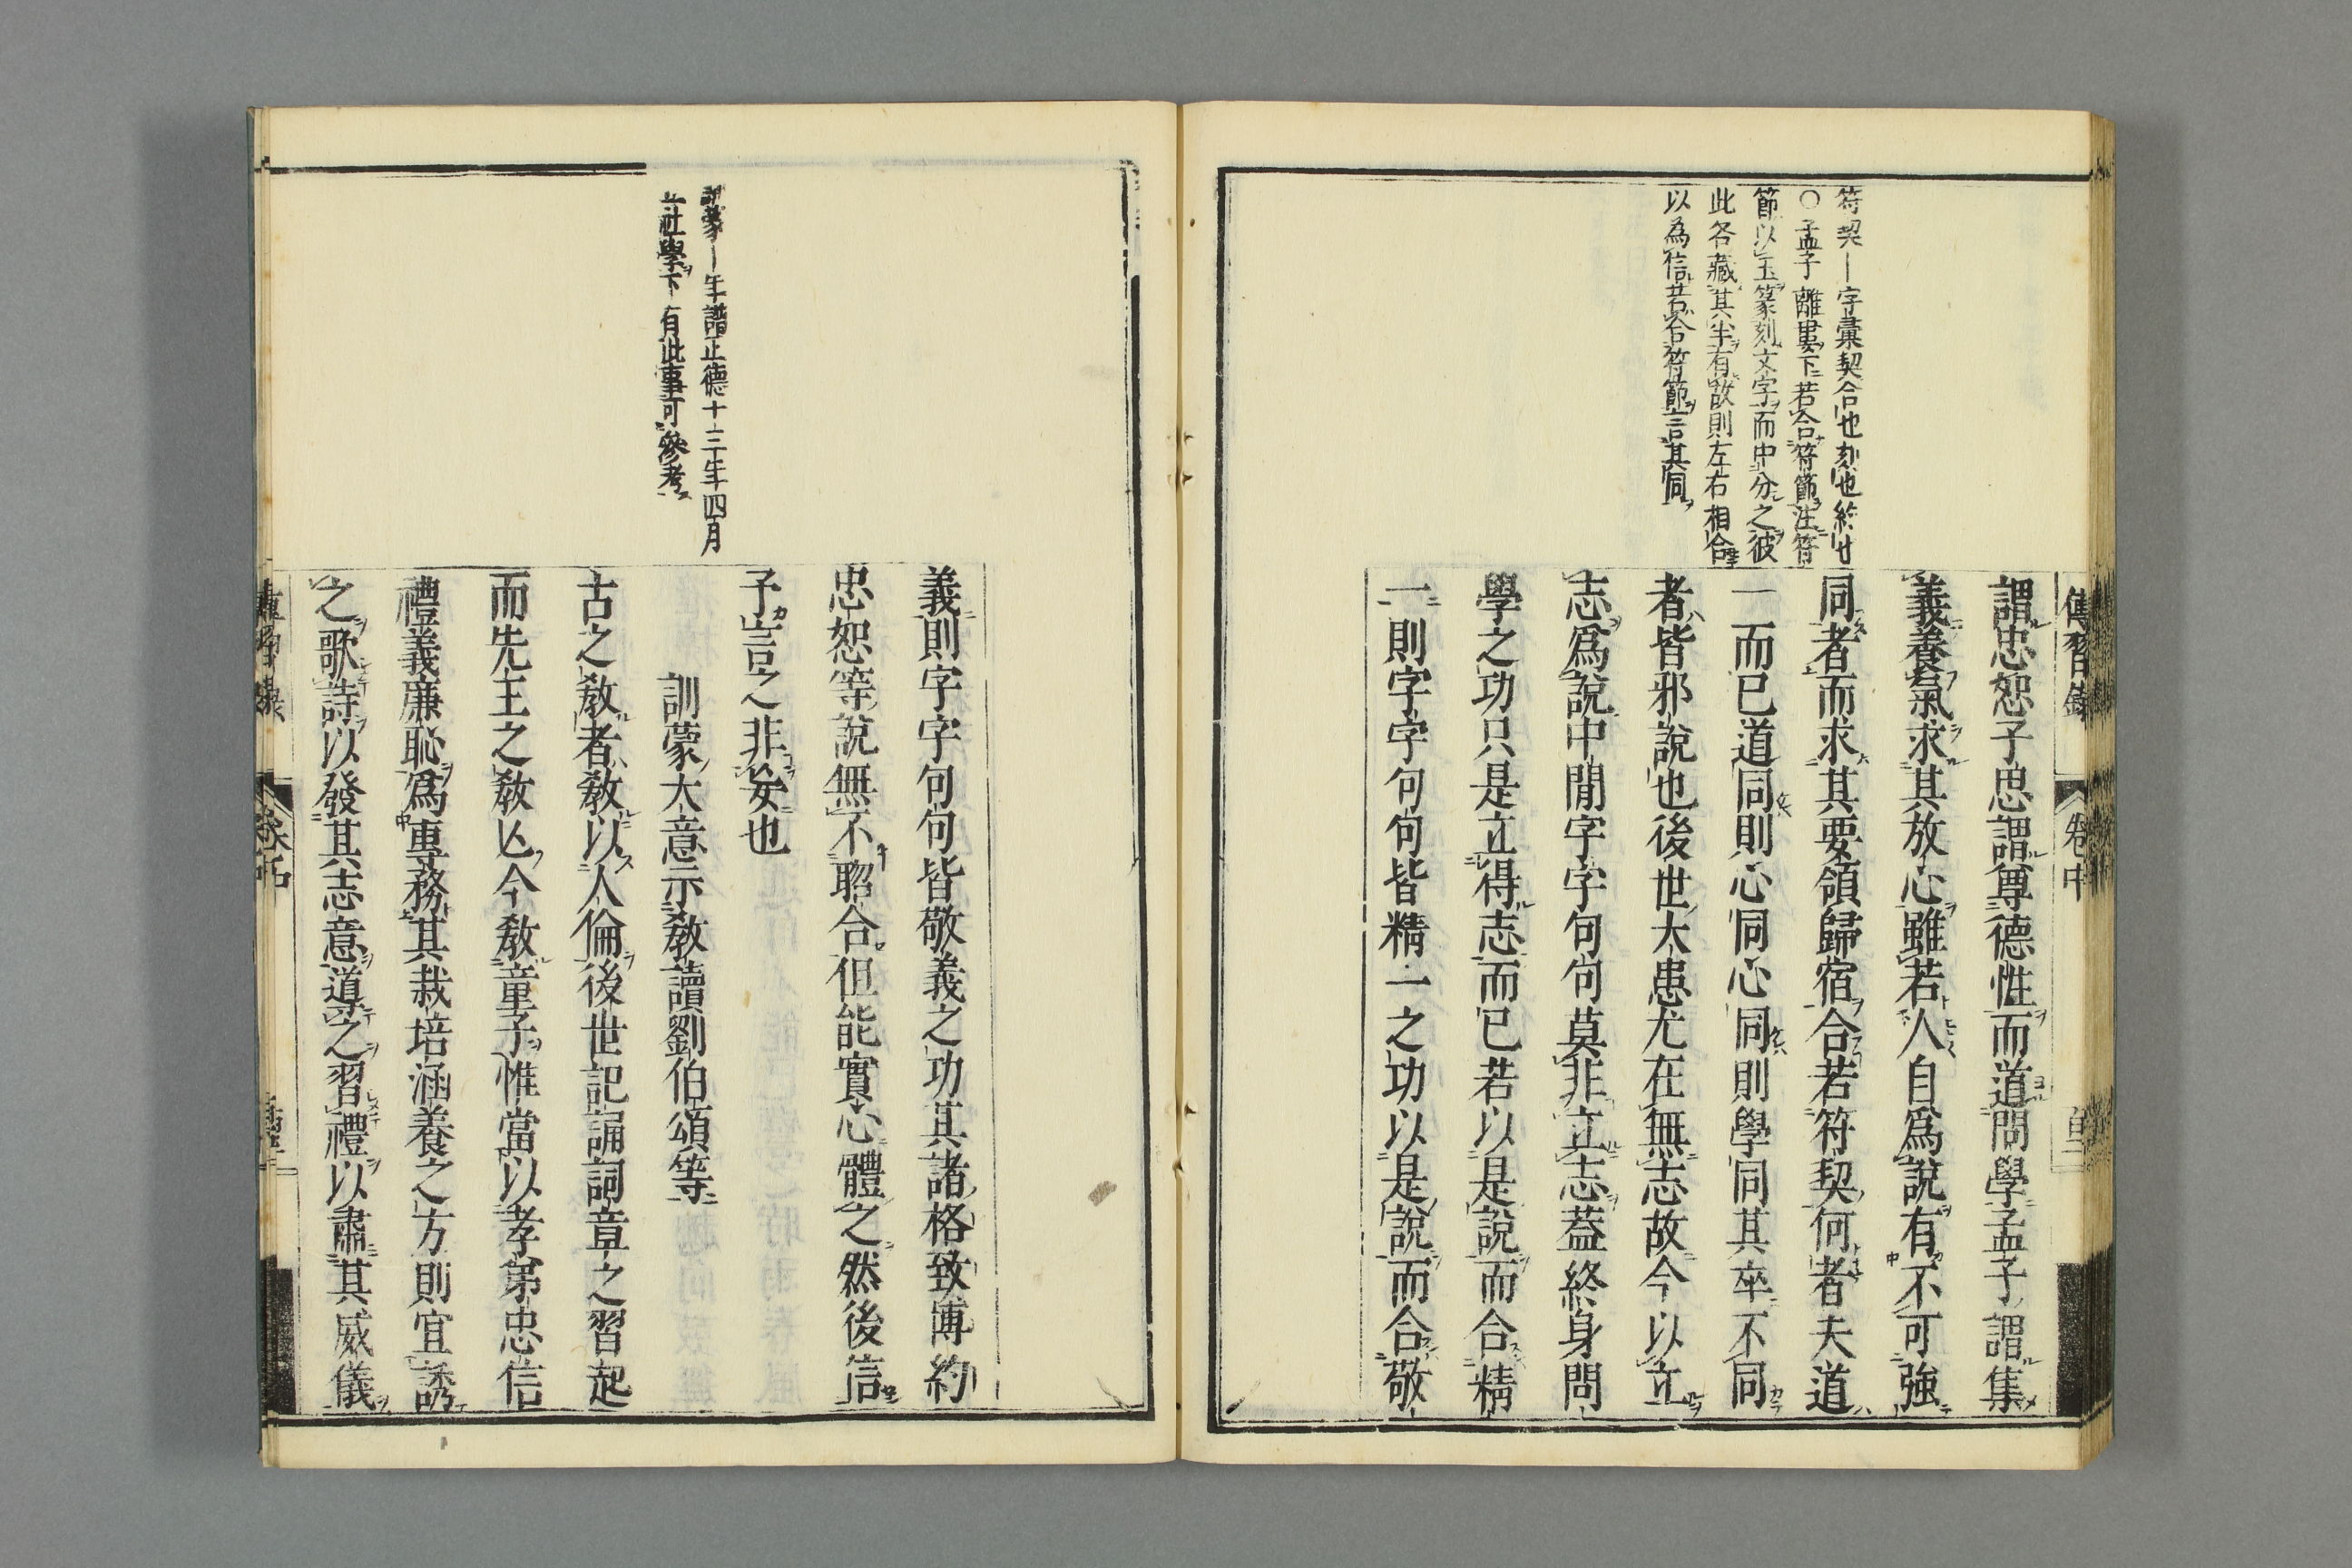 傳習錄
卷中
符契―字彙契合也刻也約也
○孟子離婁下若合符節注符
節以玉篆刻文字而中分之彼
此各藏其半有故則左右相合
以為信若合符節言其同
謂忠恕子思謂尊德性而道問學孟子謂集
義養氣求其放心雖若人自爲說有不可強
同者而求其要領歸宿合若符契何者夫道
一而已道同則心同心同則學同其卒不同
者皆邪說也後世大患尤在無志故今以立
志爲說中間字字句句莫非立志蓋終身問
學之功只是立得志而已若以是說而合精
一則字字句句皆精一之功以是說而合敬
訓蒙―年譜正德十三年四月
立社學下有此事可參考
義則字字句句皆敬義之功其諸格致博約
忠恕等說無不脗合但能實心體之然後信
予言之非妄也
訓蒙大意示教讀劉伯頌等
古之教者教以人倫後世記誦詞章之習起
而先王之教亡今教童子惟當以孝弟忠信
禮義廉恥爲專務其栽培涵養之方則宜誘
之歌詩以發其志意導之習禮以肅其威儀